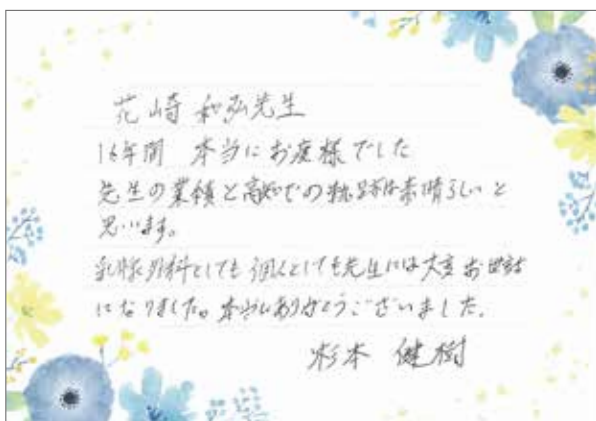 花崎 和弘先生
16年間 本当にお疲様でした
先生の業績と高知での軌跡は素晴らしいと
思います。
乳腺外科としても個人としても先生には大変お世話
になりました。本当にありがとうございました。
杉本 健樹